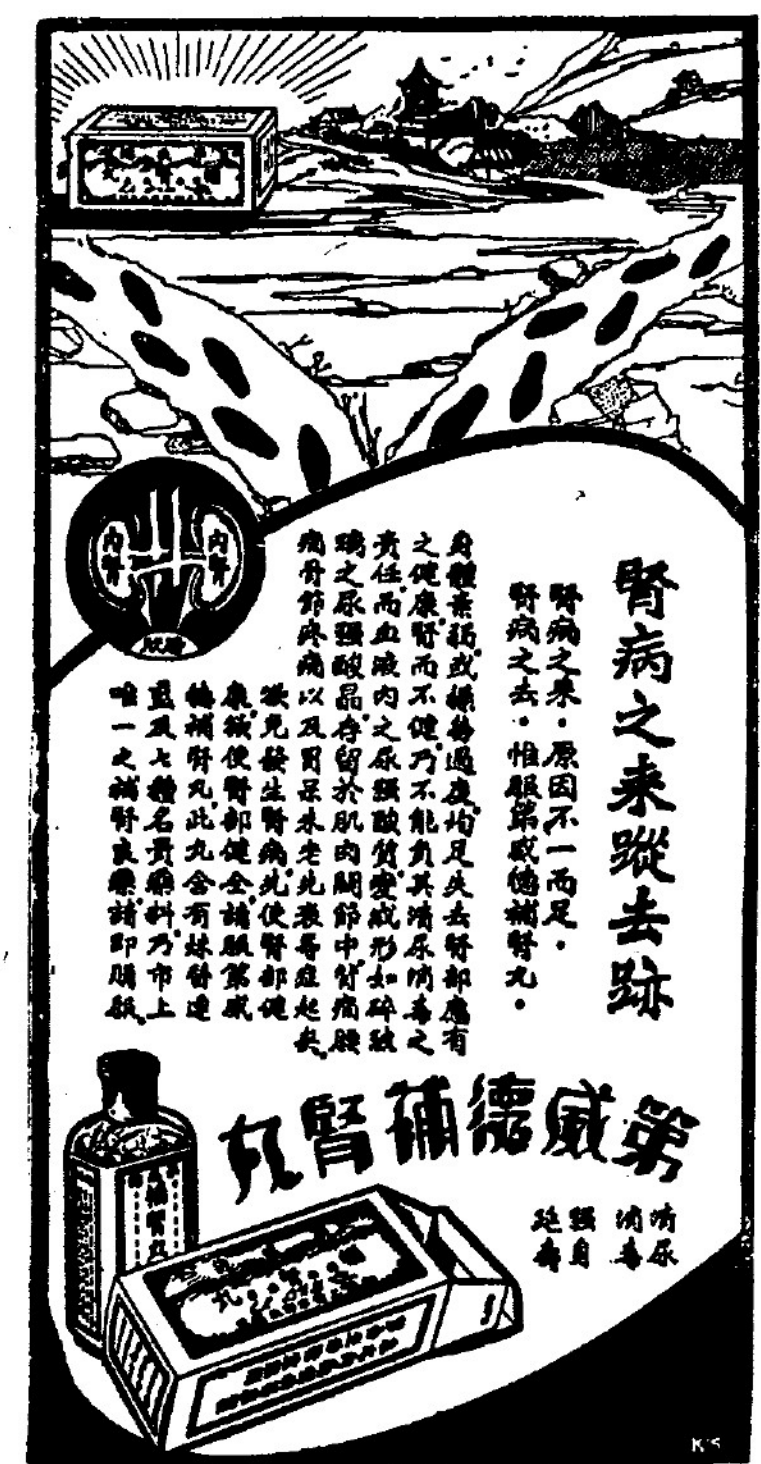 腎病之来蹤去跡
腎病之来・原因不一而足・
腎病之去・惟服第威德補腎丸・
身體素弱或操勞過度均足失去腎部應有
之健康腎而不健乃不能負其清尿消毒之
責任而血液内之尿强酸質變成形如碎玻
璃之尿强酸晶存留於肌肉關節中背痛腰
痛骨節疼痛以及胃呆未老先衰等症起矣
欲免發生腎病先使腎部健
康欲使腎部健全請服第威
德補腎丸此丸含有妹紓達
藍及七種名貴藥料乃市上
唯一之補腎良藥請即購服
内腎
内腎
膀胱
第威德補腎丸
清尿
消毒
强身
延壽
補腎丸
K'S